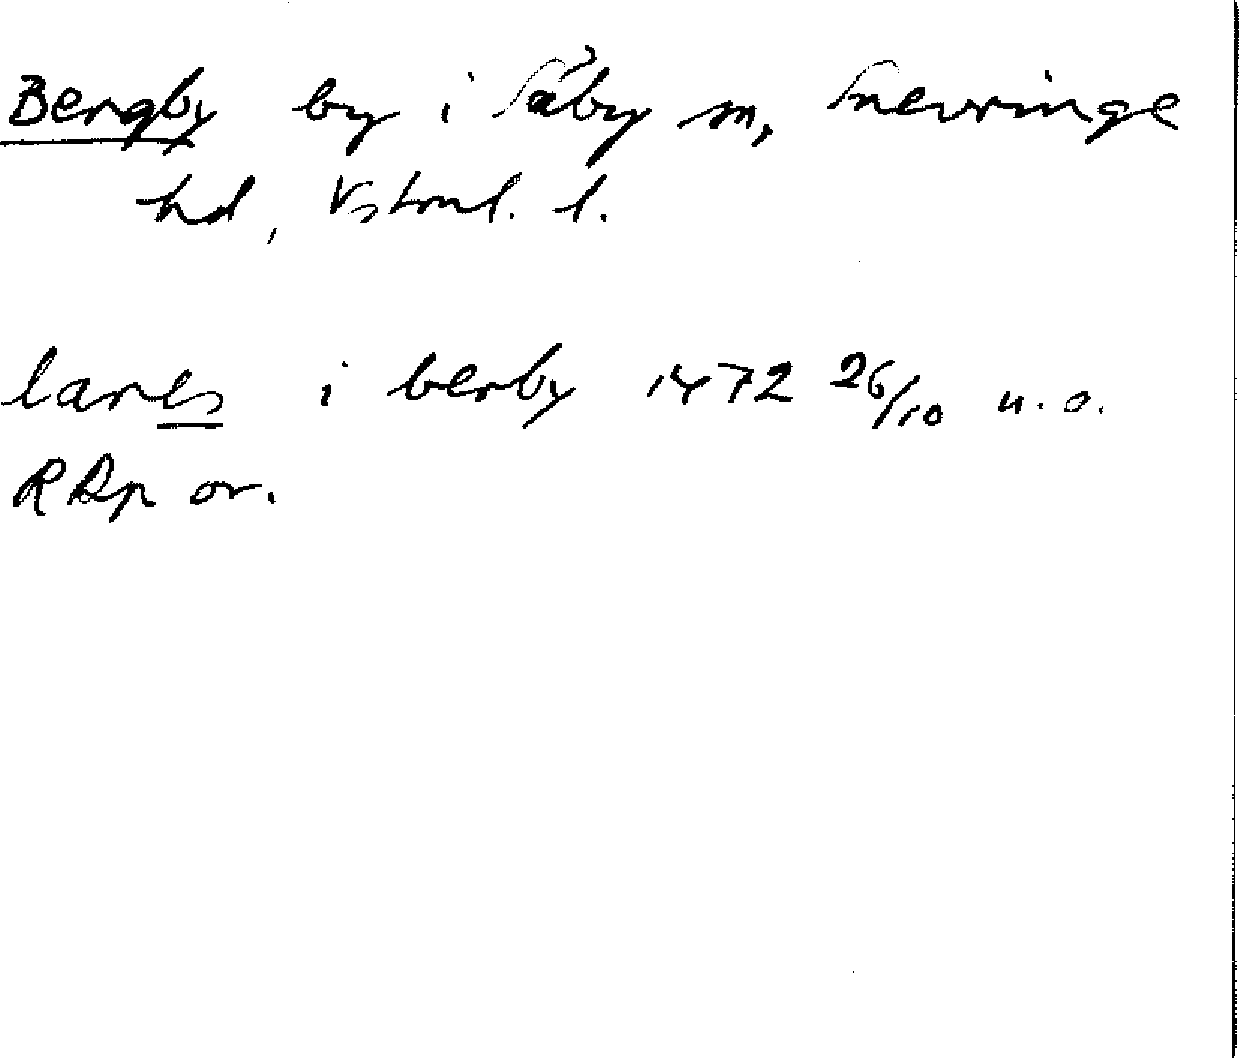 Bergby by i Säby sn, Snevringe
hd, Vstml. l.
lares i berby 1472 26/10 u. o.
RAp or.